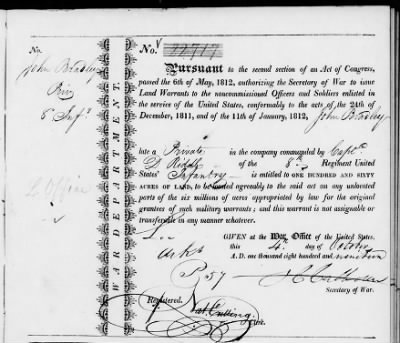 No.
John Bradley
Priv
8 Inf.
WAR DEPARTMENT.
No. 22717
Pursuant to the second section of an Act of Congress,
passed the 6th of May, 1812, authorizing the Secretary of War to issue
Land Warrants to the noncommissioned Officers and Soldiers enlisted in
the service of the United States, conformably to the acts of the 24th of
December, 1811, and of the 11th of January, 1812, John Bradley
late a Private in the company commanded by Captn.
D Riddle of the 8th Regiment United
States' Infantry is entitled to ONE HUNDRED AND SIXTY
ACRES OF LAND, to be located agreeably to the said act on any unlocated
parts of the six millions of acres appropriated by law for the original
grantees of such military warrants; and this warrant is not assignable or
transferable in any manner whatever.
GIVEN at the War Office of the United States,
this 4th day of October
A. D. one thousand eight hundred and nineteen
J C Calhoun
Secretary of War.
Registered.
Nat. Cutting
Clerk.